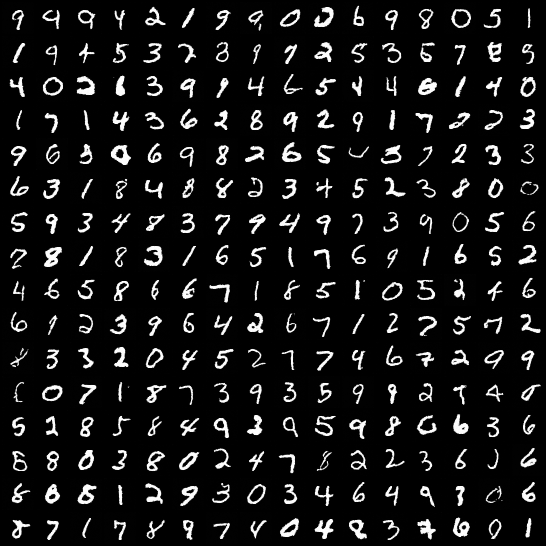 9 9 9 4 2 1 9 9 0 2 6 9 8 0 5 1
1 9 4 5 3 2 8 9 7 2 5 3 5 7 8 5
4 0 2 8 3 9 9 4 6 5 4 4 6 1 4 0
1 7 1 4 3 6 2 8 9 2 9 1 7 2 2 3
9 6 8 0 6 9 8 2 6 5 3 7 2 3 3
6 3 1 8 4 8 8 2 3 4 5 2 3 8 0 0
5 9 3 4 8 3 7 9 4 9 7 3 9 0 5 6
2 8 1 8 3 1 6 5 1 7 6 9 1 6 5 2
4 6 5 8 6 6 7 1 8 5 1 0 5 2 4 6
6 9 2 3 9 6 4 2 6 7 1 2 7 5 7 2
8 3 3 2 0 4 5 2 7 7 4 6 7 2 9 9
0 7 1 8 7 3 9 3 5 9 9 2 9 4 0
5 2 8 5 8 4 9 3 9 5 9 8 0 6 3 6
8 8 0 3 8 0 2 4 7 8 2 2 3 6 6
8 8 8 1 2 9 3 0 3 4 6 4 9 3 0 6
8 7 1 7 8 9 7 4 0 4 8 3 7 6 9 1